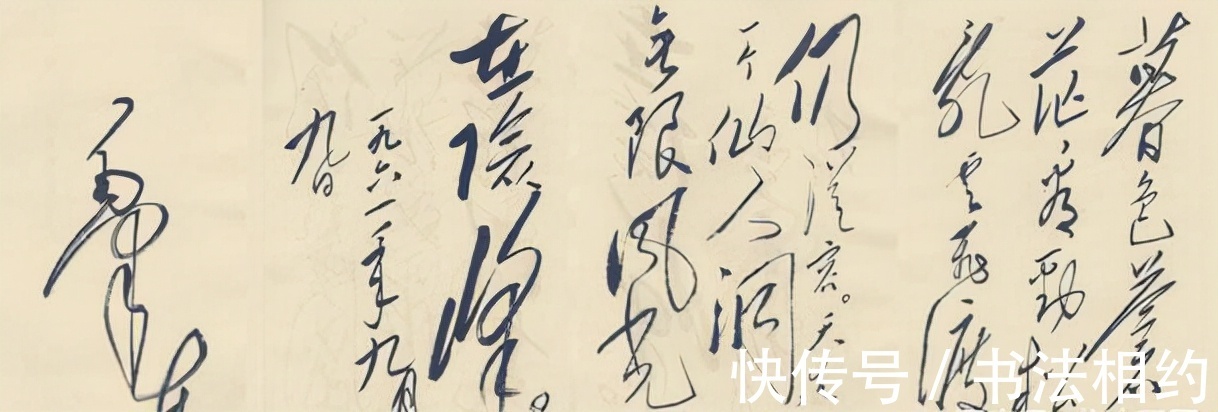 暮色苍
茫看劲松
乱云飞渡
仍从容。天
一个仙人洞
无限风光
在险峰。
一九六一年九月
九日
毛泽东
快传号 / 书法相约